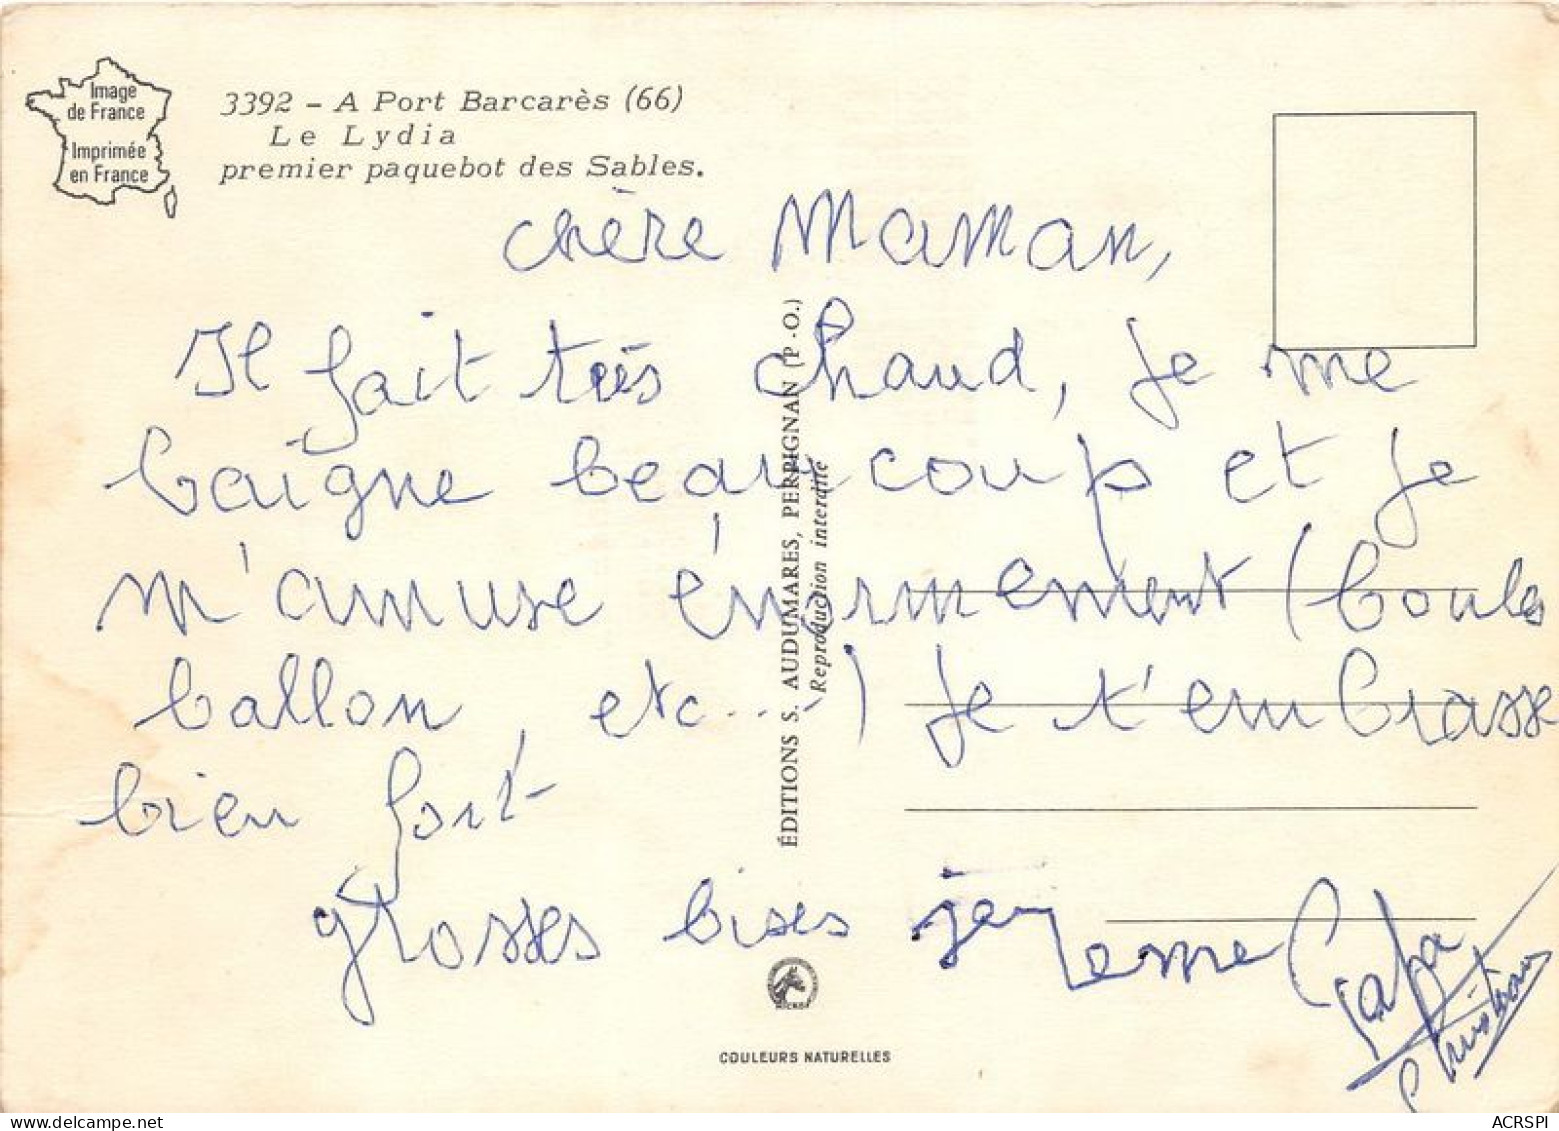 Image
de France
Imprimée
en France
3392 – A Port Barcarès (66)
Le Lydia
premier paquebot des Sables.
chère Maman,
Il fait très chaud, je me
baigne beaucoup et je
m'amuse énormement (boules
ballon, etc....) je t'embrasse
bien fort
grosses bises jérome
Papa
Christian
ÉDITIONS S. AUDUMARES, PERPIGNAN (P.-O.)
Reproduction interdite
COULEURS NATURELLES
ACRSPI